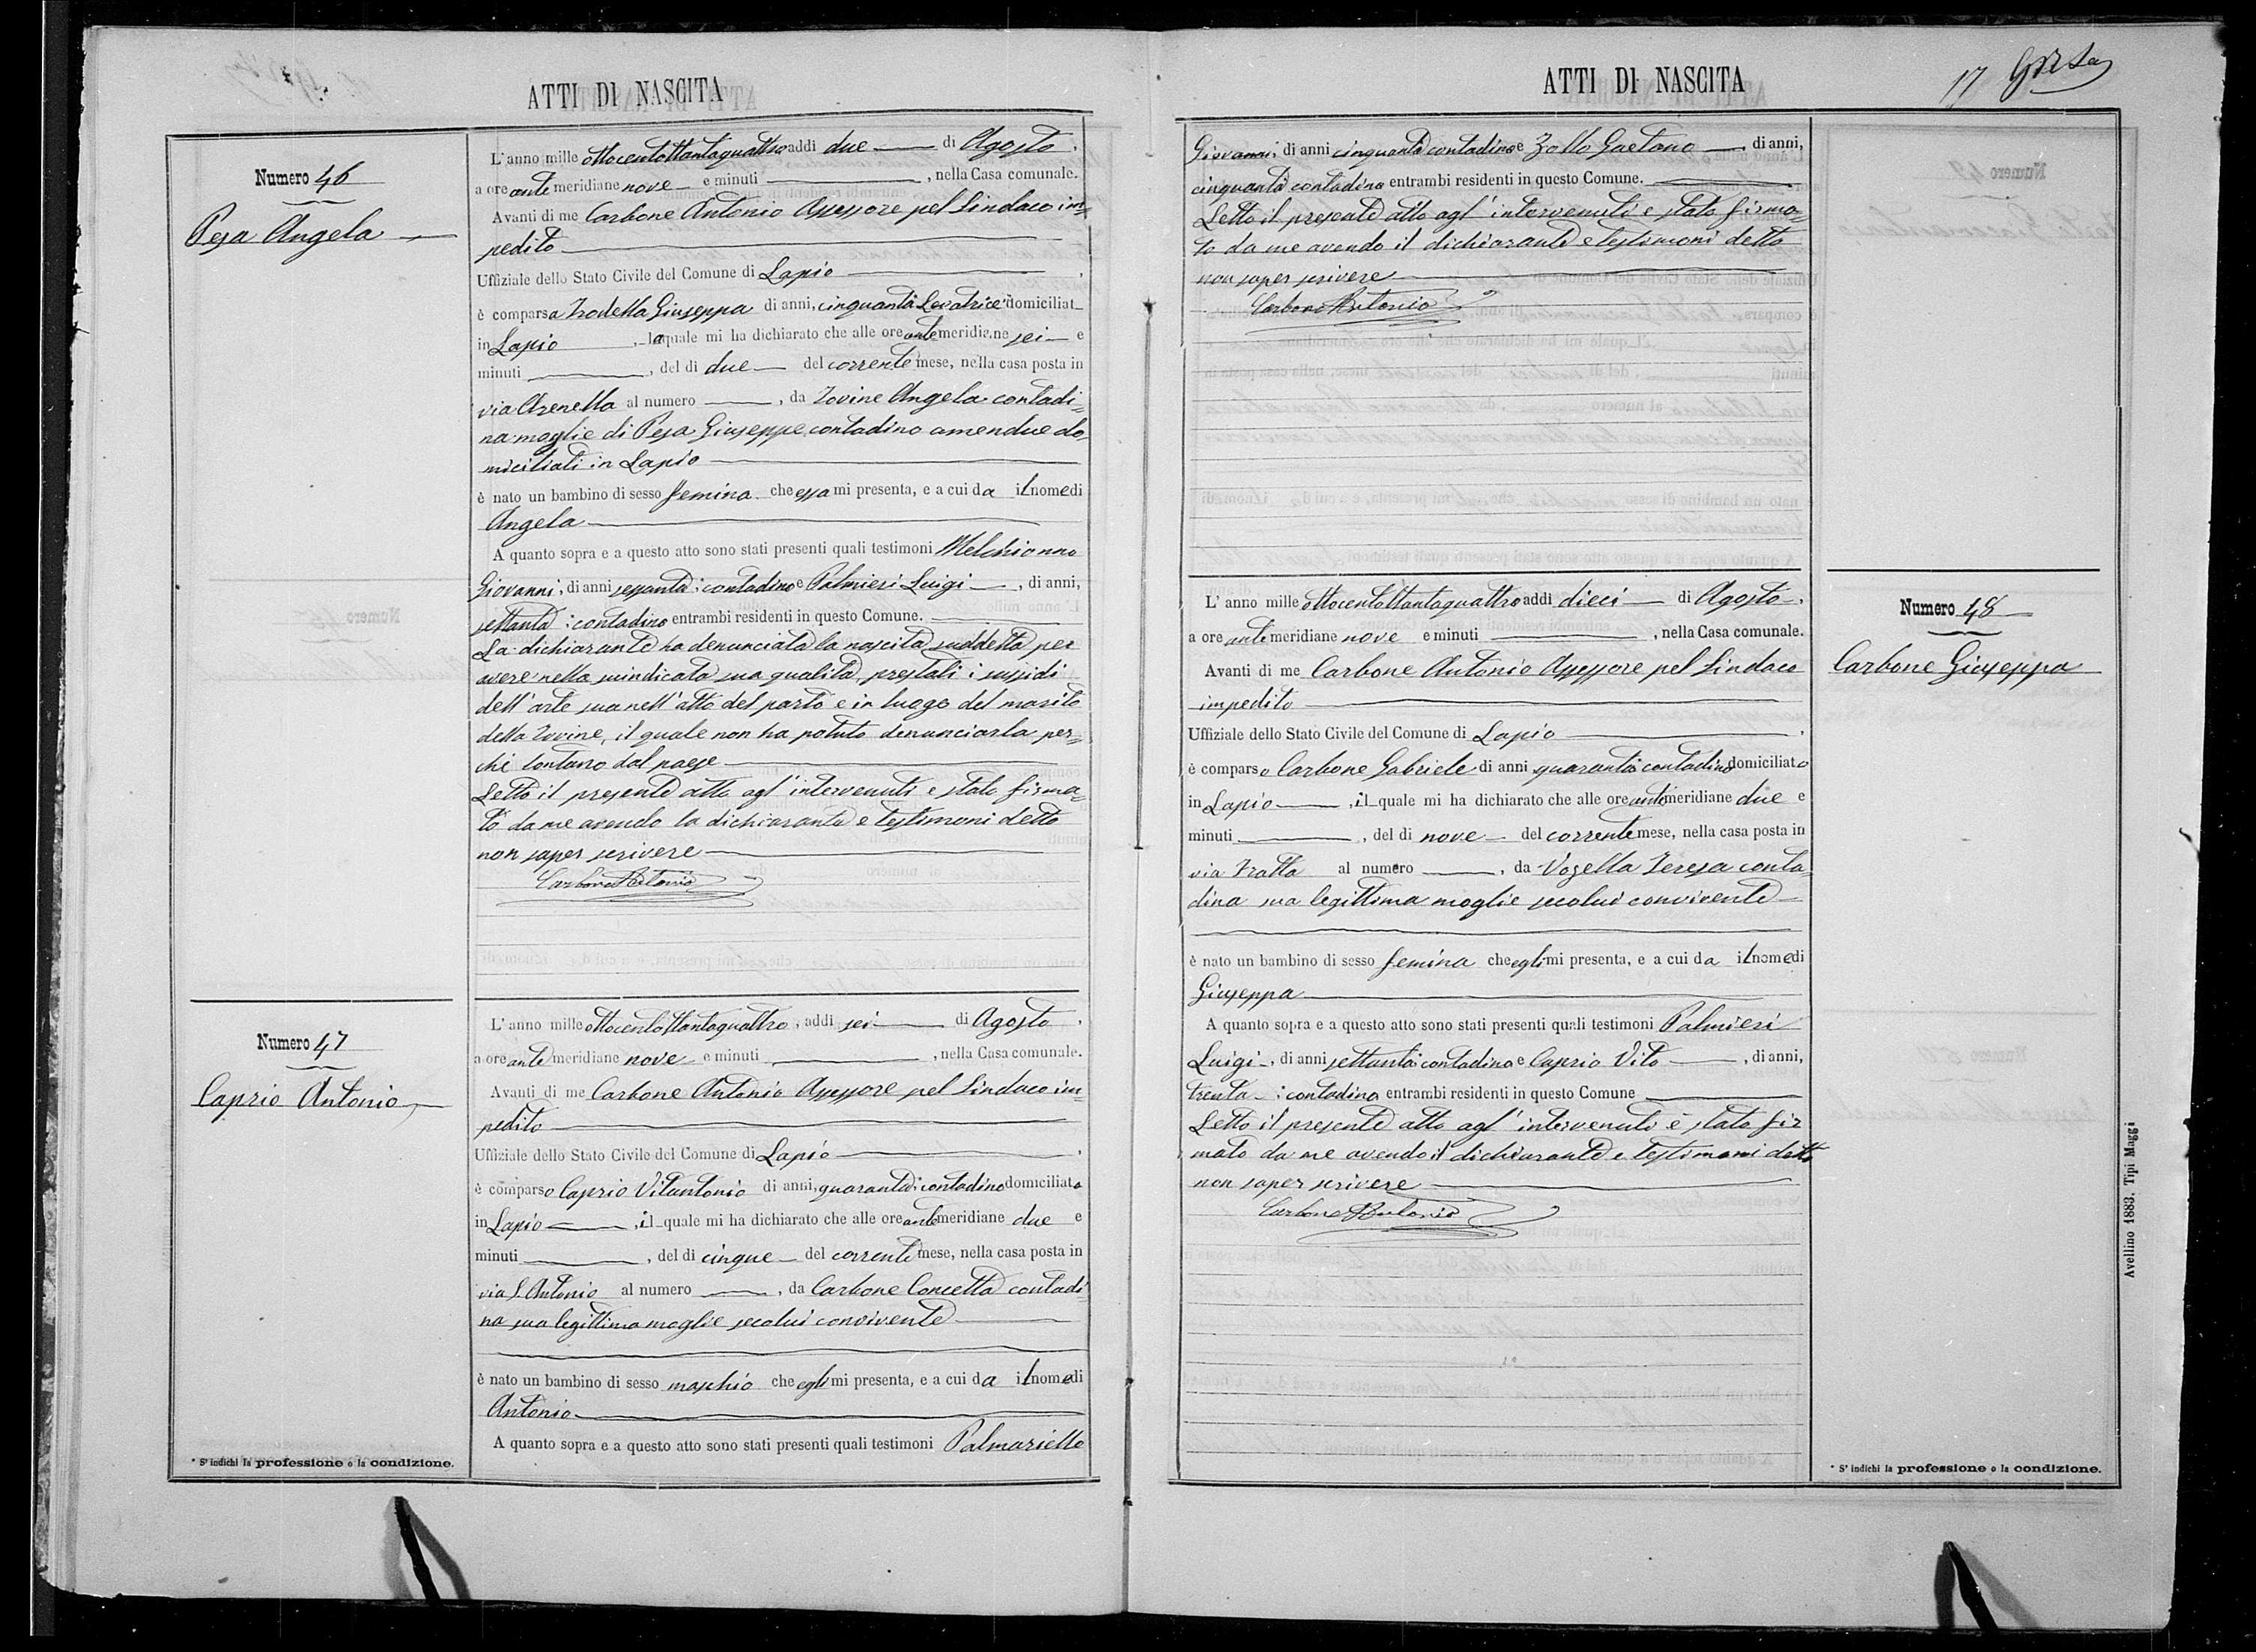 ATTI DI NASCITA
Numero 46
Pesa Angela
L'anno mille ottocentottantaquattro addì due di Agosto,
a ore ante meridiane nove e minuti , nella Casa comunale.
Avanti di me Carbone Antonio Assessore pel Sindaco im=
pedito
Uffiziale dello Stato Civile del Comune di Lapio ,
è comparsa Trodella Giuseppa di anni, cinquanta Levatrice domiciliat
in Lapio , la quale mi ha dichiarato che alle ore ante meridiane sei e
minuti , del dì due del corrente mese, nella casa posta in
via Arenella al numero , da Iovine Angela contadi=
na moglie di Pesa Giuseppe contadino amendue do
miciliati in Lapio
è nato un bambino di sesso femina che essa mi presenta, e a cui da il nome di
Angela
A quanto sopra e a questo atto sono stati presenti quali testimoni Melchionno
Giovanni, di anni sessanta; contadino e Palmieri Luigi , di anni,
settanta; contadino entrambi residenti in questo Comune.
La dichiarante ha denunciata la nascita suddetta per
avere nella suindicata sua qualità, prestati i sussidi
dell'arte sua nell'atto del parto e in luogo del marito
della Iovine, il quale non ha potuto denunciarla per=
chè lontano dal paese
Letto il presente atto agl'intervenuti e stato firma=
to da me avendo la dichiarante e testimoni detto
non saper scrivere
Carbone Antonio
Numero 47
Caprio Antonio
L'anno mille ottocentottantaquattro, addì sei di Agosto,
a ore ante meridiane nove e minuti , nella Casa comunale.
Avanti di me Carbone Antonio Assessore pel Sindaco im=
pedito
Uffiziale dello Stato Civile del Comune di Lapio ,
è comparso Caprio Vitantonio di anni, quaranta; contadino domiciliato
in Lapio , il quale mi ha dichiarato che alle ore ante meridiane due e
minuti , del dì cinque del corrente mese, nella casa posta in
via S. Antonio al numero , da Carbone Concetta contadi
na sua legittima moglie secolui convivente
è nato un bambino di sesso maschio che egli mi presenta, e a cui da il nome di
Antonio
A quanto sopra e a questo atto sono stati presenti quali testimoni Palmariello
* S'indichi la professione o la condizione.
ATTI DI NASCITA
17
Giovanni, di anni cinquanta contadino e Zollo Gaetano di anni,
cinquanta contadino entrambi residenti in questo Comune.
Letto il presente atto agl'intervenuti e stato firma=
to da me avendo il dichiarante e testimoni detto
non saper scrivere
Carbone Antonio
L'anno mille ottocentottantaquattro addì dieci di Agosto,
a ore ante meridiane nove e minuti , nella Casa comunale.
Avanti di me Carbone Antonio Assessore pel Sindaco
impedito
Uffiziale dello Stato Civile del Comune di Lapio .
è comparso Carbone Gabriele di anni quaranta contadino domiciliato
in Lapio , il quale mi ha dichiarato che alle ore ante meridiane due e
minuti , del dì nove del corrente mese, nella casa posta in
via Tratta al numero , da Vosella Teresa conta=
dina sua legittima moglie secolui convivente
è nato un bambino di sesso femina che egli mi presenta, e a cui da il nome di
Giuseppa
A quanto sopra e a questo atto sono stati presenti quali testimoni Palmieri
Luigi, di anni settanta contadino e Caprio Vito , di anni,
trenta; contadino entrambi residenti in questo Comune
Letto il presente atto agl'intervenuti è stato fir
mato da me avendo il dichiarante e testimoni detto
non saper scrivere
Carbone Antonio
Numero 48
Carbone Giuseppa
* S'indichi la professione o la condizione.
Avellino 1883. Tipi Maggi